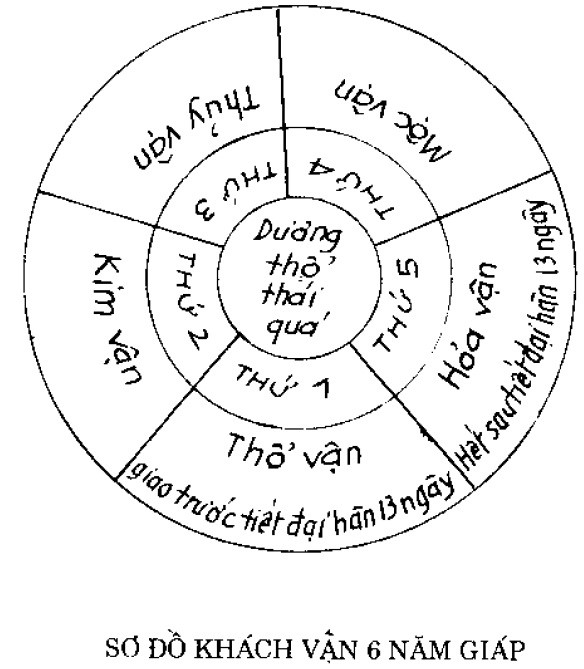 Dương
thổ
thái
quá
THỨ 1
Thổ vận
giao trước tiết đại hàn 13 ngày
THỨ 2
Kim vận
THỨ 3
Thủy vận
THỨ 4
Mộc vận
THỨ 5
Hỏa vận
Hết sau tiết đại hàn 13 ngày
SƠ ĐỒ KHÁCH VẬN 6 NĂM GIÁP